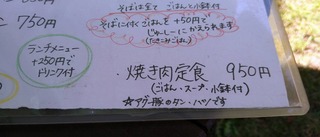 そばは全て ごはんと小鉢付
そばに付くごはんを+50円で
じゅーしーにかえられます
(たきこみごはん)
750円
ランチメニュー
+250円で
ドリンク付
・焼き肉定食 950円
(ごはん・スープ・小鉢付)
☆アグー豚のタン・ハツです